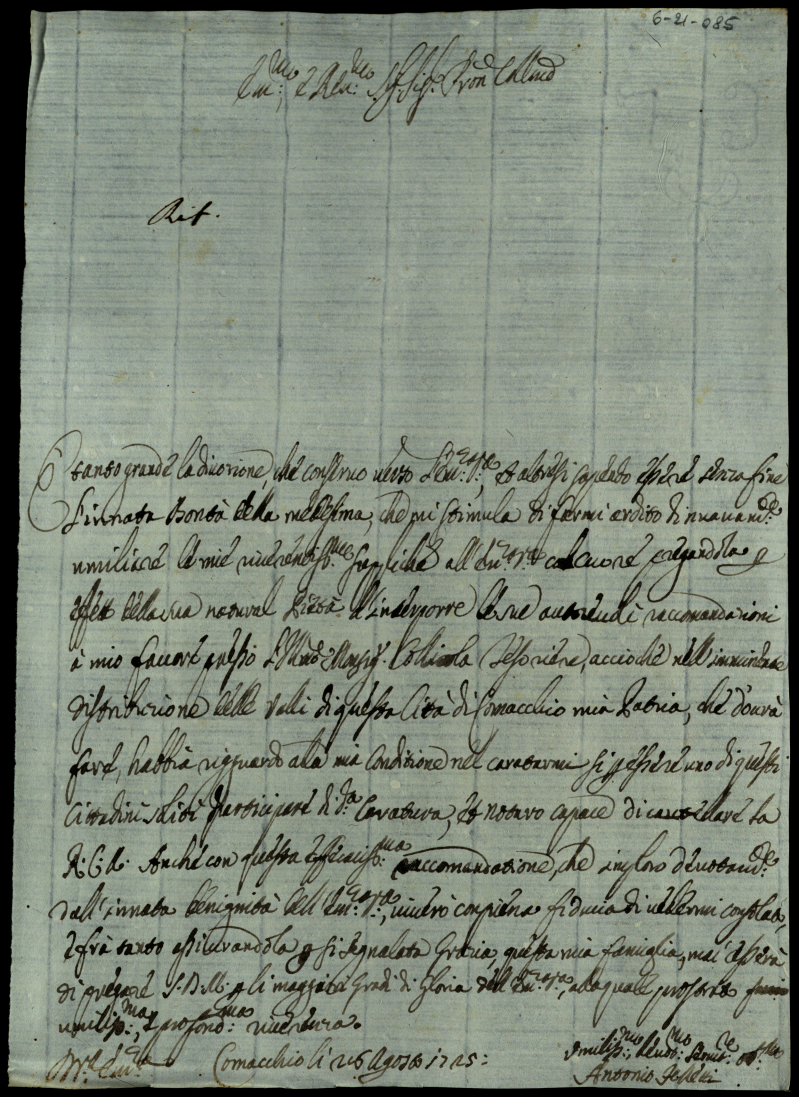 6-21-085
Em:mo, e Rev:mo Sig: Sig: Pron Col:mo
Rit.
È tanto grande la divozione, che conservo verso l'Em:za V:ra, et altresì sapendo essere senza fine
l'innata Bontà della medesima, che mi stimula di farmi ardito di nuovam:te
umiliare le mie riverentiss:me suppliche all'Em:za V:ra col cuore pregandola p
effetto della sua natural Pietà d'interporre le sue autorevoli raccomandazioni
à mio favore presso l'Ill:mo Monsig:r Collicola Tesoriere, acciochè nell'imminente
distribuzione delle Valli di questa Città di Comacchio mia Patria, che dovrà
fare, habbia riguardo alla mia Conditione nel caratarmi si p essere uno di questi
Cittadini soliti participare di d:ta Caratura, et notaro capace di cautelare la
R: C: A: Anche con questa efficaciss:ma raccomandatione, che imploro devotam:te
dall'innata benignità dell'Em:za V:ra, vivero con piena fiducia di vedermi consolato,
e frà tanto assicurandola p si segnalata Grazia, questa mia famiglia mai cesserà
di pregare S. D. M. p li maggiori Gradi di Gloria dell'Em:za V:ra, alla quale prostrato
umiliss:ma, e profond:ma riverenza.
D V:ra Em:za Comacchio li 26 Agosto 1725:
Umiliss:mo Devot:mo Servit:re Ob:mo
Antonio